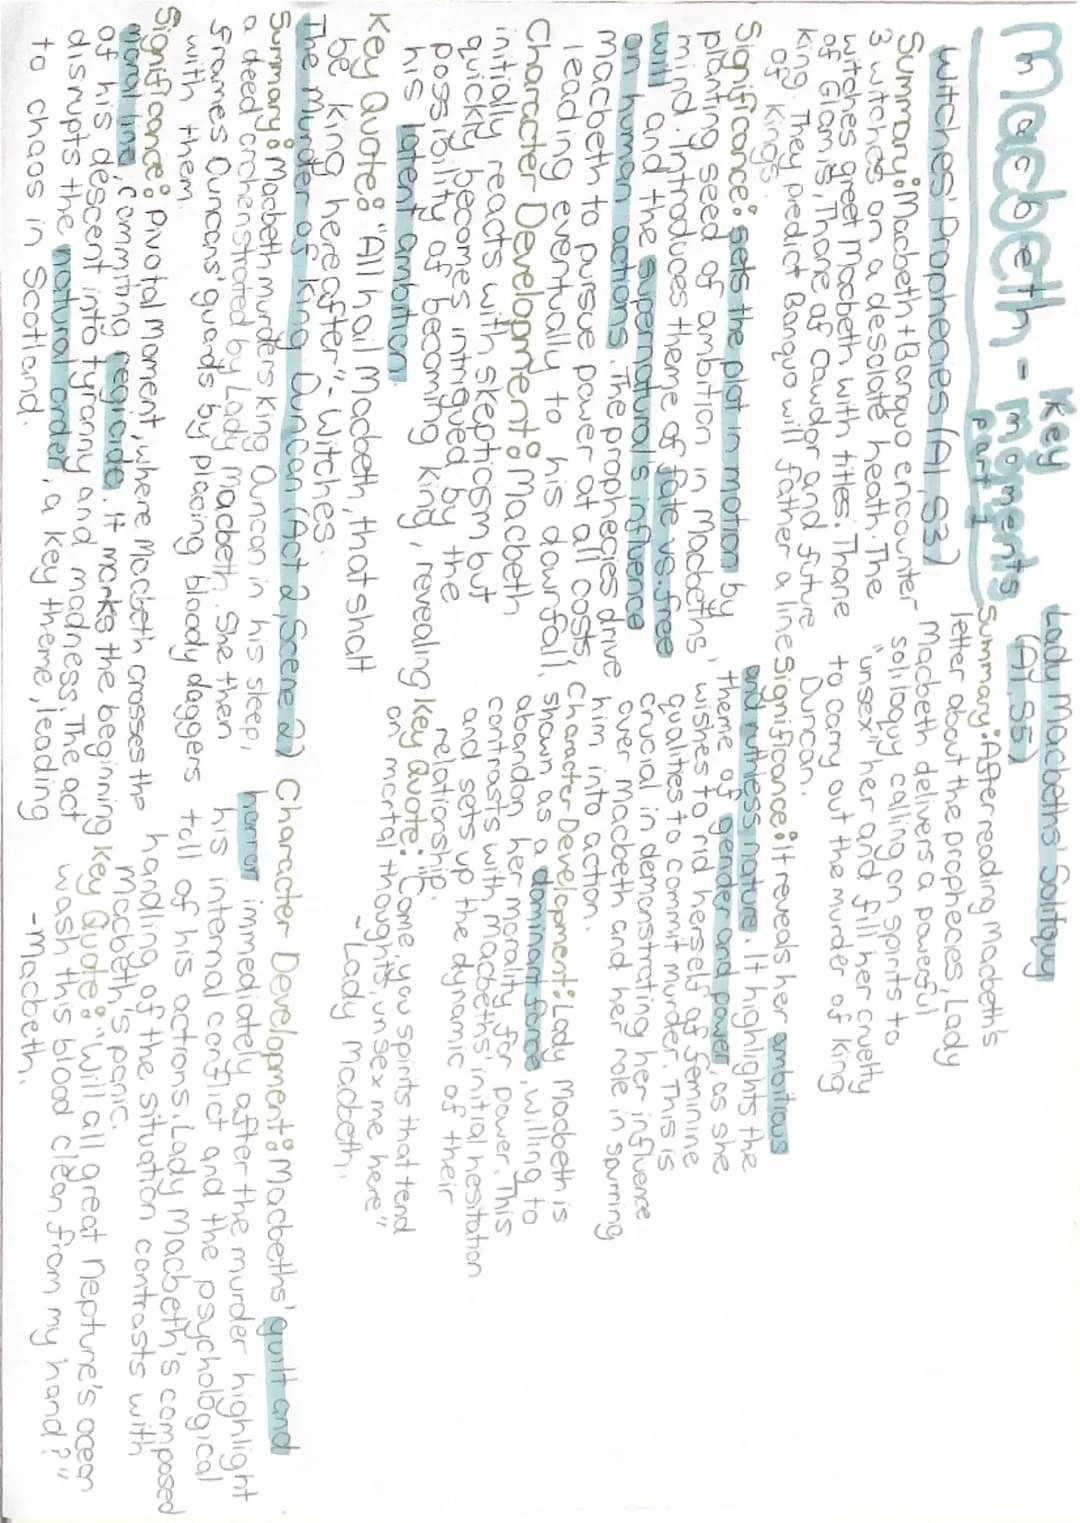 Macbeth - Key moments
part 1
Witches' Prophecies (A1, S3)
Summary: Macbeth + Banquo encounter
3 witches on a desolate heath. The
witches greet Macbeth with titles: Thane
of Glamis, Thane of Cawdor and future
King. They predict Banquo will father a line
of Kings.
Significance: Sets the plot in motion by
planting seed of ambition in Macbeths'
mind. Introduces theme of fate vs. free
will and the supernatural's influence
on human actions. The prophecies drive
Macbeth to pursue power at all costs,
leading eventually to his downfall.
Character Development: Macbeth
intially reacts with skepticism but
quickly becomes intrigued by the
possibility of becoming king, revealing
his latent ambition.
Key Quote: "All hail Macbeth, that shalt
be king hereafter" - Witches.
Lady Macbeths' Soliloquy
(A1, S5)
Summary: After reading Macbeth's
letter about the prophecies, Lady
Macbeth delivers a powerful
soliloquy calling on spirits to
"unsex" her and fill her cruelty
to carry out the murder of King
Duncan.
Significance: It reveals her ambitious
and ruthless nature. It highlights the
theme of gender and power, as she
wishes to rid herself of feminine
qualities to commit murder. This is
crucial in demonstrating her influence
over Macbeth and her role in spurring
him into action.
Character Development: Lady Macbeth is
shown as a dominant force, willing to
abandon her morality for power. This
contrasts with Macbeths' initial hesitation
and sets up the dynamic of their
relationship.
Key Quote: "Come, you spirits that tend
on mortal thoughts, unsex me here"
- Lady Macbeth.
The Murder of King Duncan (Act 2, Scene 2)
Summary: Macbeth murders King Duncan in his sleep,
a deed orchenstrated by Lady Macbeth. She then
frames Duncans' guards by placing bloody daggers
with them.
Significance: Pivotal moment, where Macbeth crosses the
moral line, commiting regicide. It marks the beginning
of his descent into tyranny and madness. The act
disrupts the natural order, a key theme, leading
to chaos in Scotland.
Character Development: Macbeths' guilt and
horror immediately after the murder highlight
his internal conflict and the psychological
toll of his actions. Lady Macbeth's composed
handling of the situation contrasts with
Macbeth's panic.
Key Quote: "Will all great Neptune's ocean
wash this blood clean from my hand?"
- Macbeth.